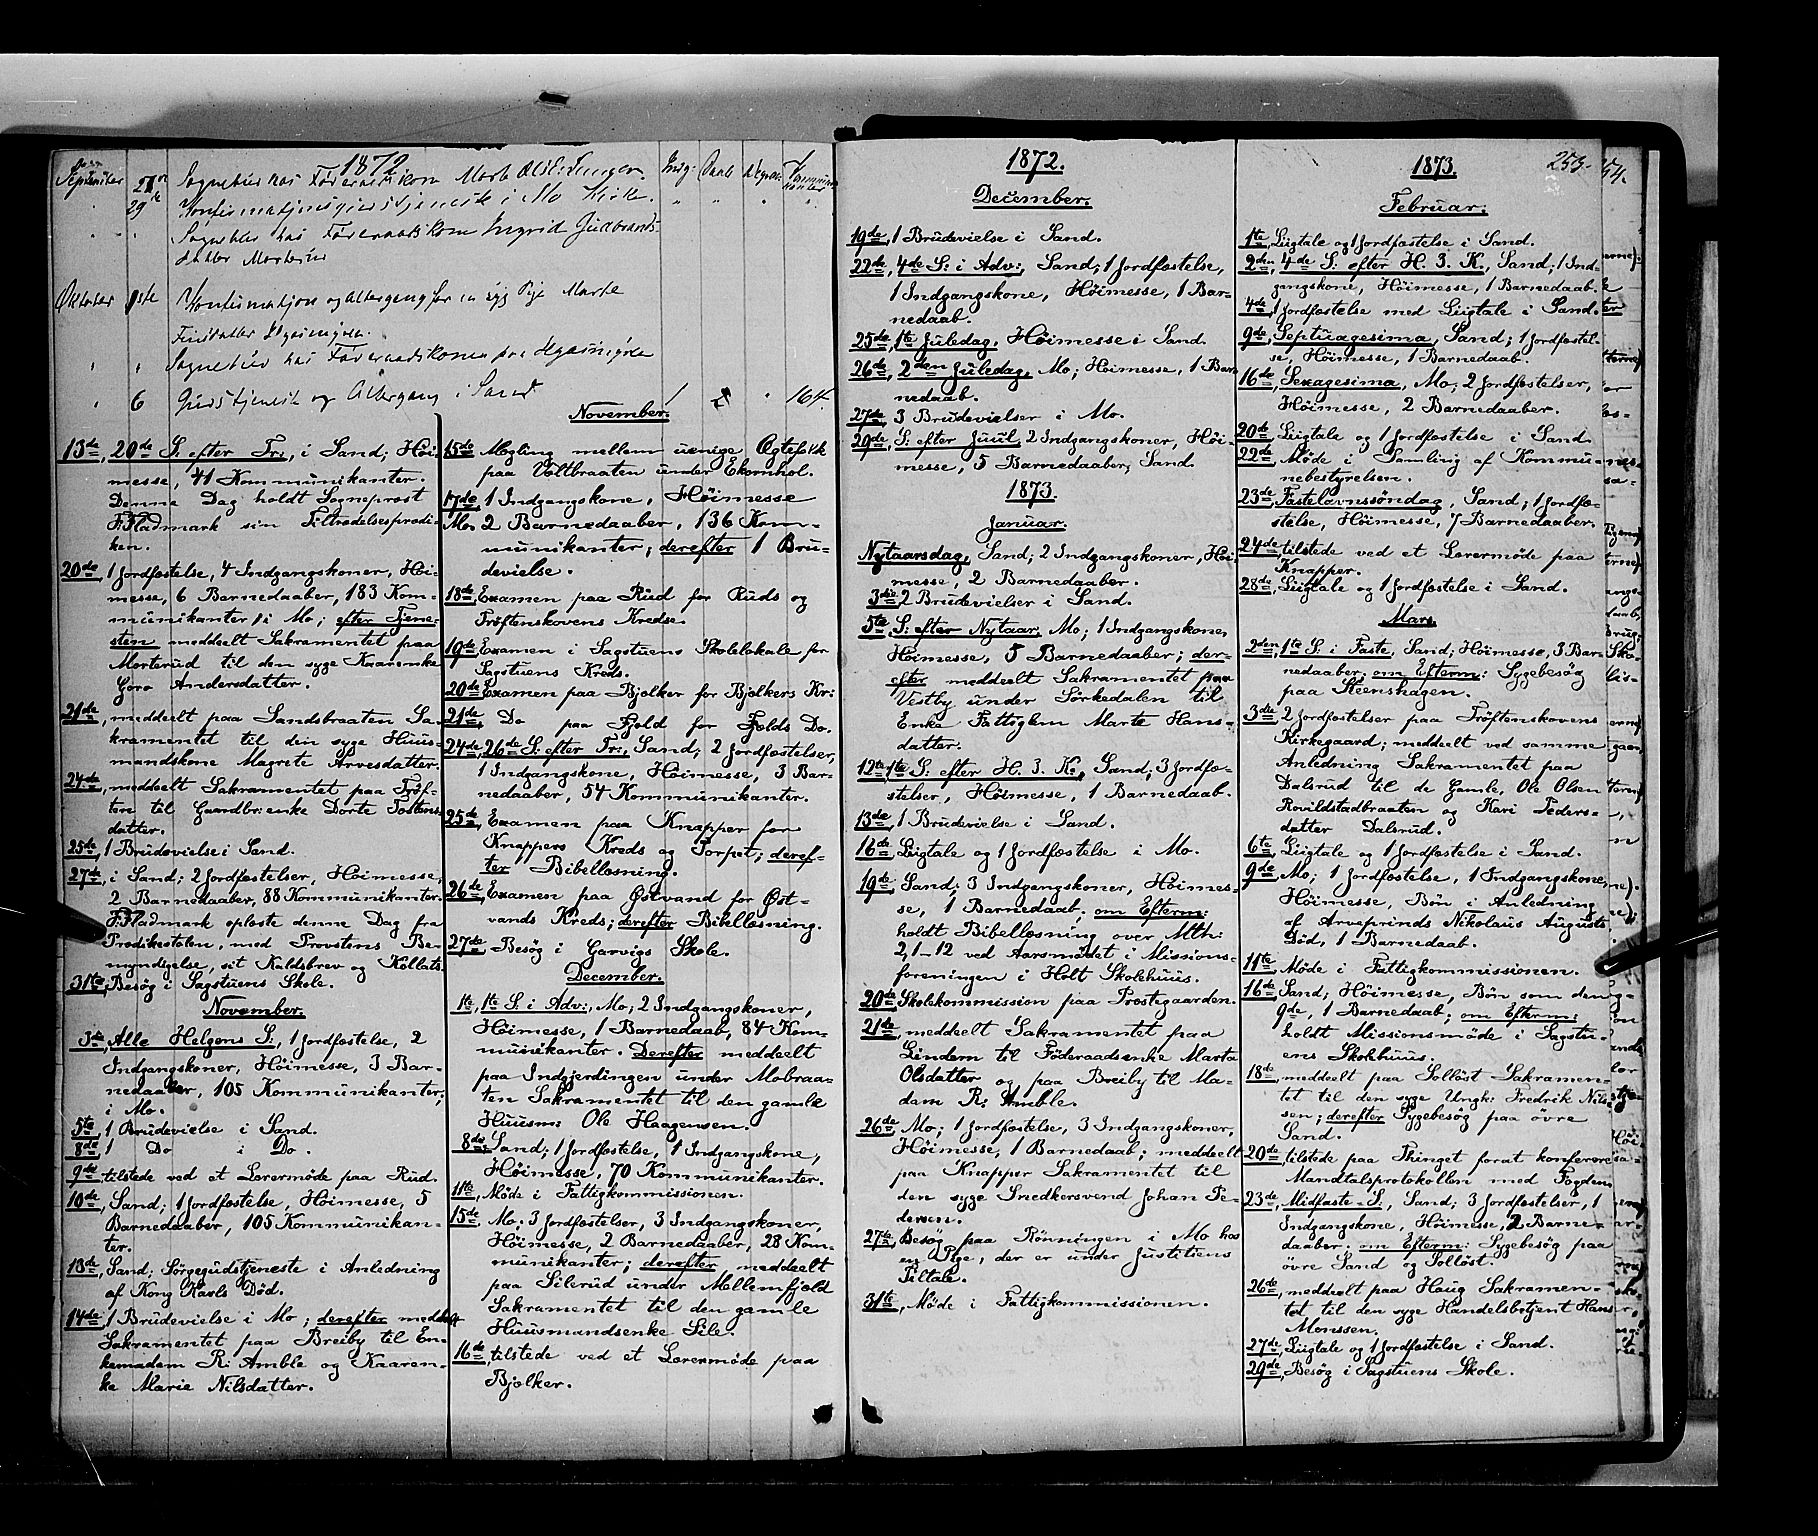 1872
September 27de Sognebud hos Føderaadskone Marte Olsd. Indg: Daab Kommunikanter
29de Konfirmationsgudstjeneste i Mo Kirke.
Sognebud hos Føderaadskone Ingrid Gudbrands-
datter
Oktober 1ste Konfirmation og Altergang for en syg Pige Marte
Sognebud hos Føderaadskonen paa
6 Gudstjeneste og Altergang i Sand 1 2 164.
13de, 20de S. efter Tr:, i Sand; Høi-
messe, 41 Kommunikanter.
Denne Dag holdt Sogneprest
F. Fladmark sin Tiltrædelsesprædi-
ken.
20de, 1 Jordfæstelse, 4 Indgangskoner, Høi-
messe, 6 Barnedaaber, 183 Kom-
munikanter, i Mo; efter Tjene-
sten meddeelt Sakramentet paa
Morterud til den syge Kaaremke
Goro Andersdatter.
21de, meddeelt paa Sandsbraaten Sa-
kramentet til den syge Huus-
mandskone Magrete Arvesdatter.
24de, meddeelt Sakramentet paa Trøf-
ten til Gaardbr:enke Dorte Tostens-
datter.
25de, 1 Brudevielse i Sand.
27de, i Sand; 2 Jordfæstelser, Høimesse,
2 Barnedaaber, 88 Kommunikanter.
F. Fladmark oplæste denne Dag fra
Prædikestolen, med Provstens Be-
myndigelse, sit Kaldsbrev og Kollats.
31te, Besøg i Sagstuens Skole.
November.
3die, Alle Helgens S:, 1 Jordfæstelse, 2
Indgangskoner, Høimesse, 3 Bar-
nedaaber, 105 Kommunikanter,
i Mo.
5te, 1 Brudevielse i Sand.
8de, 1 Do i Do.
9de, tilstede ved et Lærermøde paa Rud.
10de, Sand; 1 Jordfæstelse, Høimesse, 5
Barnedaaber, 105 Kommunikan-
ter.
13de, Sand; Sørgegudstjeneste i Anledning
af Kong Karls Død.
14de, 1 Brudevielse i Mo; derefter meddeelt
Sakramentet paa Breiby til En-
kemadem R: Amble og Kaarem-
ke Marie Nilsdatter.
November.
15de, Mægling mellem uenige Ægtefolk
paa Voltbraaten under Ekornhol.
17de, 1 Indgangskone, Høimesse
Mo. 2 Barnedaaber, 136 Kom-
munikanter; derefter 1 Bru-
devielse.
18de, Examen paa Rud for Ruds og
Trøftenskovens Kredse.
19de, Examen i Sagstuens Skolelokale for
Sagstuens Kreds.
20de, Examen paa Bjølker for Bjølkers Kr:
21de, Do paa Fjeld for Fjelds Do.
24de, 26de S: efter Tr:, Sand; 2 Jordfæstelser,
1 Indgangskone, Høimesse, 3 Bar-
nedaaber, 54 Kommunikanter.
25de, Examen paa Knapper for
Knappers Kreds og Torpet; deref-
ter Bibellæsning.
26de, Examen paa Østvand for Øst-
vands Kreds; derefter Bibellæsning.
27de, Besøg i Garvigs Skole.
December.
1te, 1te S. i Adv:, Mo; 2 Indgangskoner,
Høimesse, 1 Barnedaab, 84 Kom-
munikanter. Derefter meddeelt
paa Indgjerdingen under Mobraa-
ten Sakramentet til den gamle
Huusm: Ole Haagensen.
8de, Sand; 1 Jordfæstelse, 1 Indgangskone,
Høimesse, 70 Kommunikanter.
11te, Møde i Fattigkommissionen.
15de, Mo; 3 Jordfæstelser, 3 Indgangskoner,
Høimesse, 2 Barnedaaber, 28 Kom-
munikanter; derefter meddeelt
paa Silerud under Mellemfjeld
Sakramentet til den gamle
Huusmandsenke Sile.
16de, tilstede ved et Lærermøde paa
Bjølker.
1872.
December.
19de, 1 Brudevielse i Sand.
22de, 4de S: i Adv:, Sand; 1 Jordfæstelse,
1 Indgangskone, Høimesse, 1 Bar-
nedaab.
25de, 1te Juledag, Høimesse i Sand.
26de, 2den Juledag, Mo; Høimesse, 1 Bar-
nedaab.
27de, 3 Brudevielser i Mo.
29de, S: efter Juul, 2 Indgangskoner, Høi-
messe, 5 Barnedaaber, Sand.
1873.
Januar.
Nytaarsdag, Sand; 2 Indgangskoner, Høi-
messe, 2 Barnedaaber.
3die, 2 Brudevielser i Sand.
5te, S: efter Nytaar, Mo; 1 Indgangskone,
Høimesse, 5 Barnedaaber; der-
efter meddeelt Sakramentet paa
Vestby under Sørkedalen til
Enke Fattiglem Marte Hans-
datter.
12te, 1te S: efter H. 3. K., Sand; 3 Jordfæ-
stelser, Høimesse, 1 Barnedaab.
13de, 1 Brudevielse i Sand.
16de, Liigtale og 1 Jordfæstelse i Mo.
19de, Sand; 3 Indgangskoner, Høimes-
se, 1 Barnedaab; om Efterm:
holdt Bibellæsning over Mth:
2,1-12 ved Aarsmødet i Missions-
foreningen i Holt Skolehuus.
20de, Skolekommission paa Præstegaarden.
21de, meddeelt Sakramentet paa
Lindern til Føderaadsenke Marta
Olsdatter og paa Breiby til Ma-
dam R: Amble.
26de, Mo; 1 Jordfæstelse, 3 Indgangskoner,
Høimesse, 1 Barnedaab; meddeelt
paa Knapper Sakramentet til
den syge Snedkersvend Johan Pe-
dersen.
27de, Besøg paa Rønningen i Mo hos
en Pige, der er under Justitiens
Tiltale.
31te, Møde i Fattigkommissionen.
1873. 253.
Februar.
1te, Liigtale og 1 Jordfæstelse i Sand.
2den, 4de S: efter H. 3. K., Sand; 1 Ind-
gangskone, Høimesse, 1 Barnedaab.
4de, 1 Jordfæstelse med Liigtale i Sand.
9de, Septuagesima, Sand; 1 Jordfæstel-
se, Høimesse, 1 Barnedaab.
16de, Sexagesima, Mo; 2 Jordfæstelser,
Høimesse, 2 Barnedaaber.
20de, Liigtale og 1 Jordfæstelse i Sand.
22de, Møde i Samling af Kommu-
nebestyrelsen.
23de, Fastelavnssøndag, Sand; 1 Jordfæ-
stelse, Høimesse, 7 Barnedaaber.
24de, tilstede ved et Lærermøde paa
Knapper.
28de, Liigtale og 1 Jordfæstelse i Sand.
Mars.
2den, 1te S: i Faste, Sand; Høimesse, 3 Bar-
nedaaber; om Efterm: Sygebesøg
paa Steenshagen.
3die, 2 Jordfæstelser paa Trøftenskovens
Kirkegaard; meddeelt ved samme
Anledning Sakramentet paa
Dalsrud til de Gamle, Ole Olsen
Rovildstadbraaten og Kari Peders-
datter Dalsrud.
6te, Liigtale og 1 Jordfæstelse i Sand.
9de, Mo; 1 Jordfæstelse, 1 Indgangskone,
Høimesse, Bøn i Anledning
af Arveprinds Nikolaus Augusts
Død, 1 Barnedaab.
11te, Møde i Fattigkommissionen.
16de, Sand; Høimesse, Bøn som den
9de, 1 Barnedaab; om Efterm:
holdt Missionsmøde i Sagstu-
ens Skolehuus.
18de, meddeelt paa Solløst Sakramen-
tet til den syge Ungk: Fredrik Nils-
sen; derefter Sygebesøg paa øvre
Sand.
20de, tilstede paa Thinget forat konferere
Mandtalsprotokollen med Fogden
23de, Midfaste-S., Sand; 3 Jordfæstelser, 1
Indgangskone, Høimesse, 2 Barne-
daaber; om Efterm: Sygebesøg paa
øvre Sand og Solløst.
26de, meddeelt paa Haug Sakramen-
tet til den syge Handelsbetjent Hans
Monssen.
27de, Liigtale og 1 Jordfæstelse i Sand.
29de, Besøg i Sagstuens Skole.